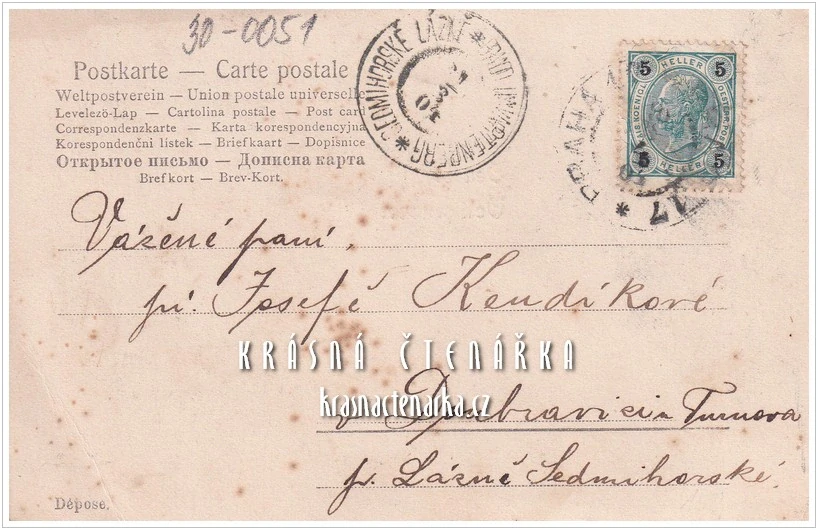 30-0051
Postkarte — Carte postale
Weltpostverein — Union postale universelle
Levelező-Lap — Cartolina postale — Post card
Correspondenzkarte — Karta korespondencyjna
Korespondenční lístek — Briefkaart — Dopisnice
Открытое письмо — Дописна карта
Brefkort — Brev-Kort.
SEDMIHORSKÉ LÁZNĚ * BAD WARTENBERG *
04
5 HELLER 5
5 HELLER 5
17 *
Vážené paní,
pí. Josefě Kendíkové
KRÁSNÁ ČTENÁŘKA
krasnactenarka.cz
v Doubravici u Turnova
p. Lázně Sedmihorské.
Déposé.